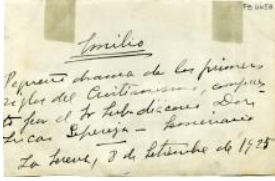 Emilio
Pequeño drama de los primeros
siglos del Cristianismo, compues-
to por el Sr Subdiácono Don
Lucas - Seminario
La Serena, 8 de Setiembre de 1925